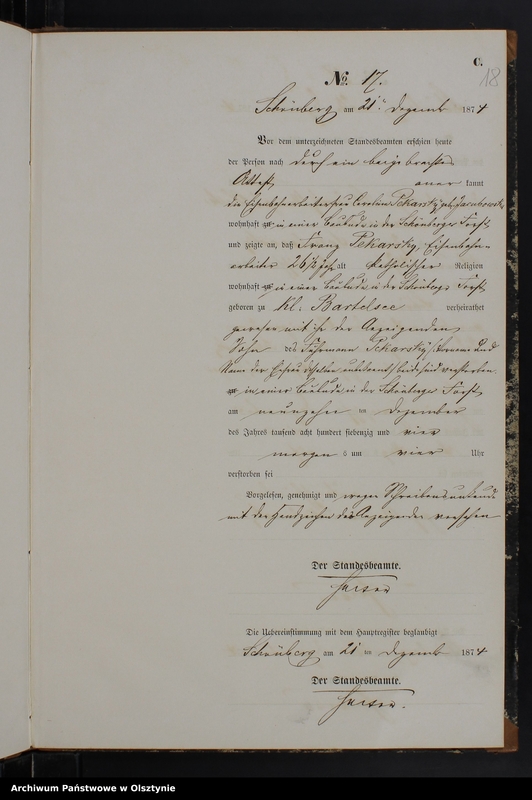 C.
18
No. 17.
Schönberg am 21t Dezemb 1874
Vor dem unterzeichneten Standesbeamten erschien heute
der Person nach durch ein beigebrachtes
Attest anerkannt
die Eisenbahnarbeiterfrau Caroline Pekarsky geb.
wohnhaft in einer Baubude in der Schönberger Forst
und zeigte an, daß Franz Pekarsky, Eisenbahn-
arbeiter 26½ Jahr alt katholischer Religion
wohnhaft in einer Baubude in der Schönberger Forst,
geboren zu Kl: Bartelsee verheirathet
gewesen mit ihr der Anzeigenden
Sohn des Fuhrmann Pekarsky Vorname und
Name der Ehefrau desselben unbekannt beide sind verstorben
in einer Baubude in der Schönberger Forst
am neunzehn ten Dezember
des Jahres tausend acht hundert siebenzig und vier
morgens um vier Uhr
verstorben sei
Vorgelesen, genehmigt und wegen Schreibensunkunde
mit der Handzeichen des Anzeigenden versehen
Der Standesbeamte.
Die Uebereinstimmung mit dem Hauptregister beglaubigt
Schönberg am 21 ten Dezemb 1874
Der Standesbeamte.
Archiwum Państwowe w Olsztynie